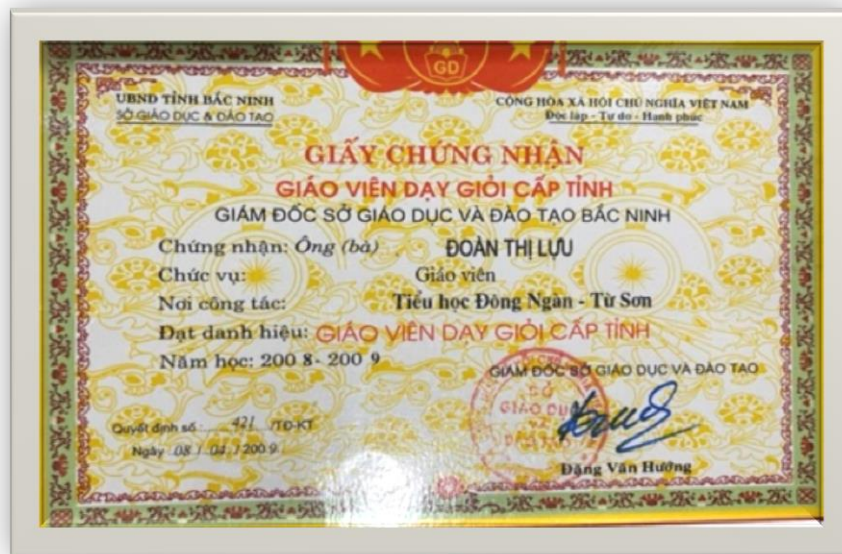 GD
UBND TỈNH BẮC NINH
SỞ GIÁO DỤC & ĐÀO TẠO
CỘNG HÒA XÃ HỘI CHỦ NGHĨA VIỆT NAM
Độc lập - Tự do - Hạnh phúc
GIẤY CHỨNG NHẬN
GIÁO VIÊN DẠY GIỎI CẤP TỈNH
GIÁM ĐỐC SỞ GIÁO DỤC VÀ ĐÀO TẠO BẮC NINH
Chứng nhận: Ông (bà) ĐOÀN THỊ LỰU
Chức vụ: Giáo viên
Nơi công tác: Tiểu học Đông Ngàn - Từ Sơn
Đạt danh hiệu: GIÁO VIÊN DẠY GIỎI CẤP TỈNH
Năm học: 2008-2009
GIÁM ĐỐC SỞ GIÁO DỤC VÀ ĐÀO TẠO
SỞ
GIÁO DỤC
VÀ
ĐÀO TẠO
Quyết định số: 421 /TĐ-KT
Ngày 08 / 04 / 2009
Đặng Văn Hướng